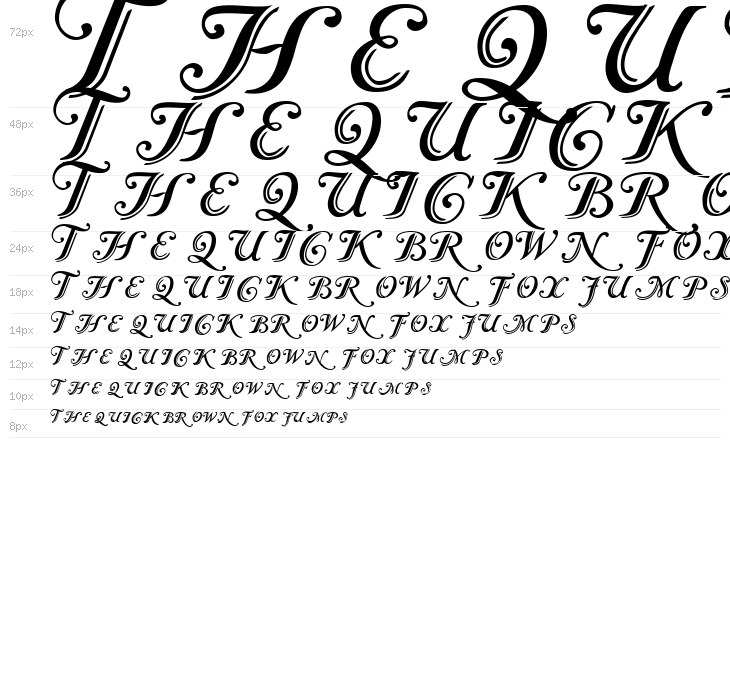 72px THE QU
48px THE QUICK
36px THE QUICK BRO
24px THE QUICK BROWN FOX
18px THE QUICK BROWN FOX JUMPS
14px THE QUICK BROWN FOX JUMPS
12px THE QUICK BROWN FOX JUMPS
10px THE QUICK BROWN FOX JUMPS
8px THE QUICK BROWN FOX JUMPS